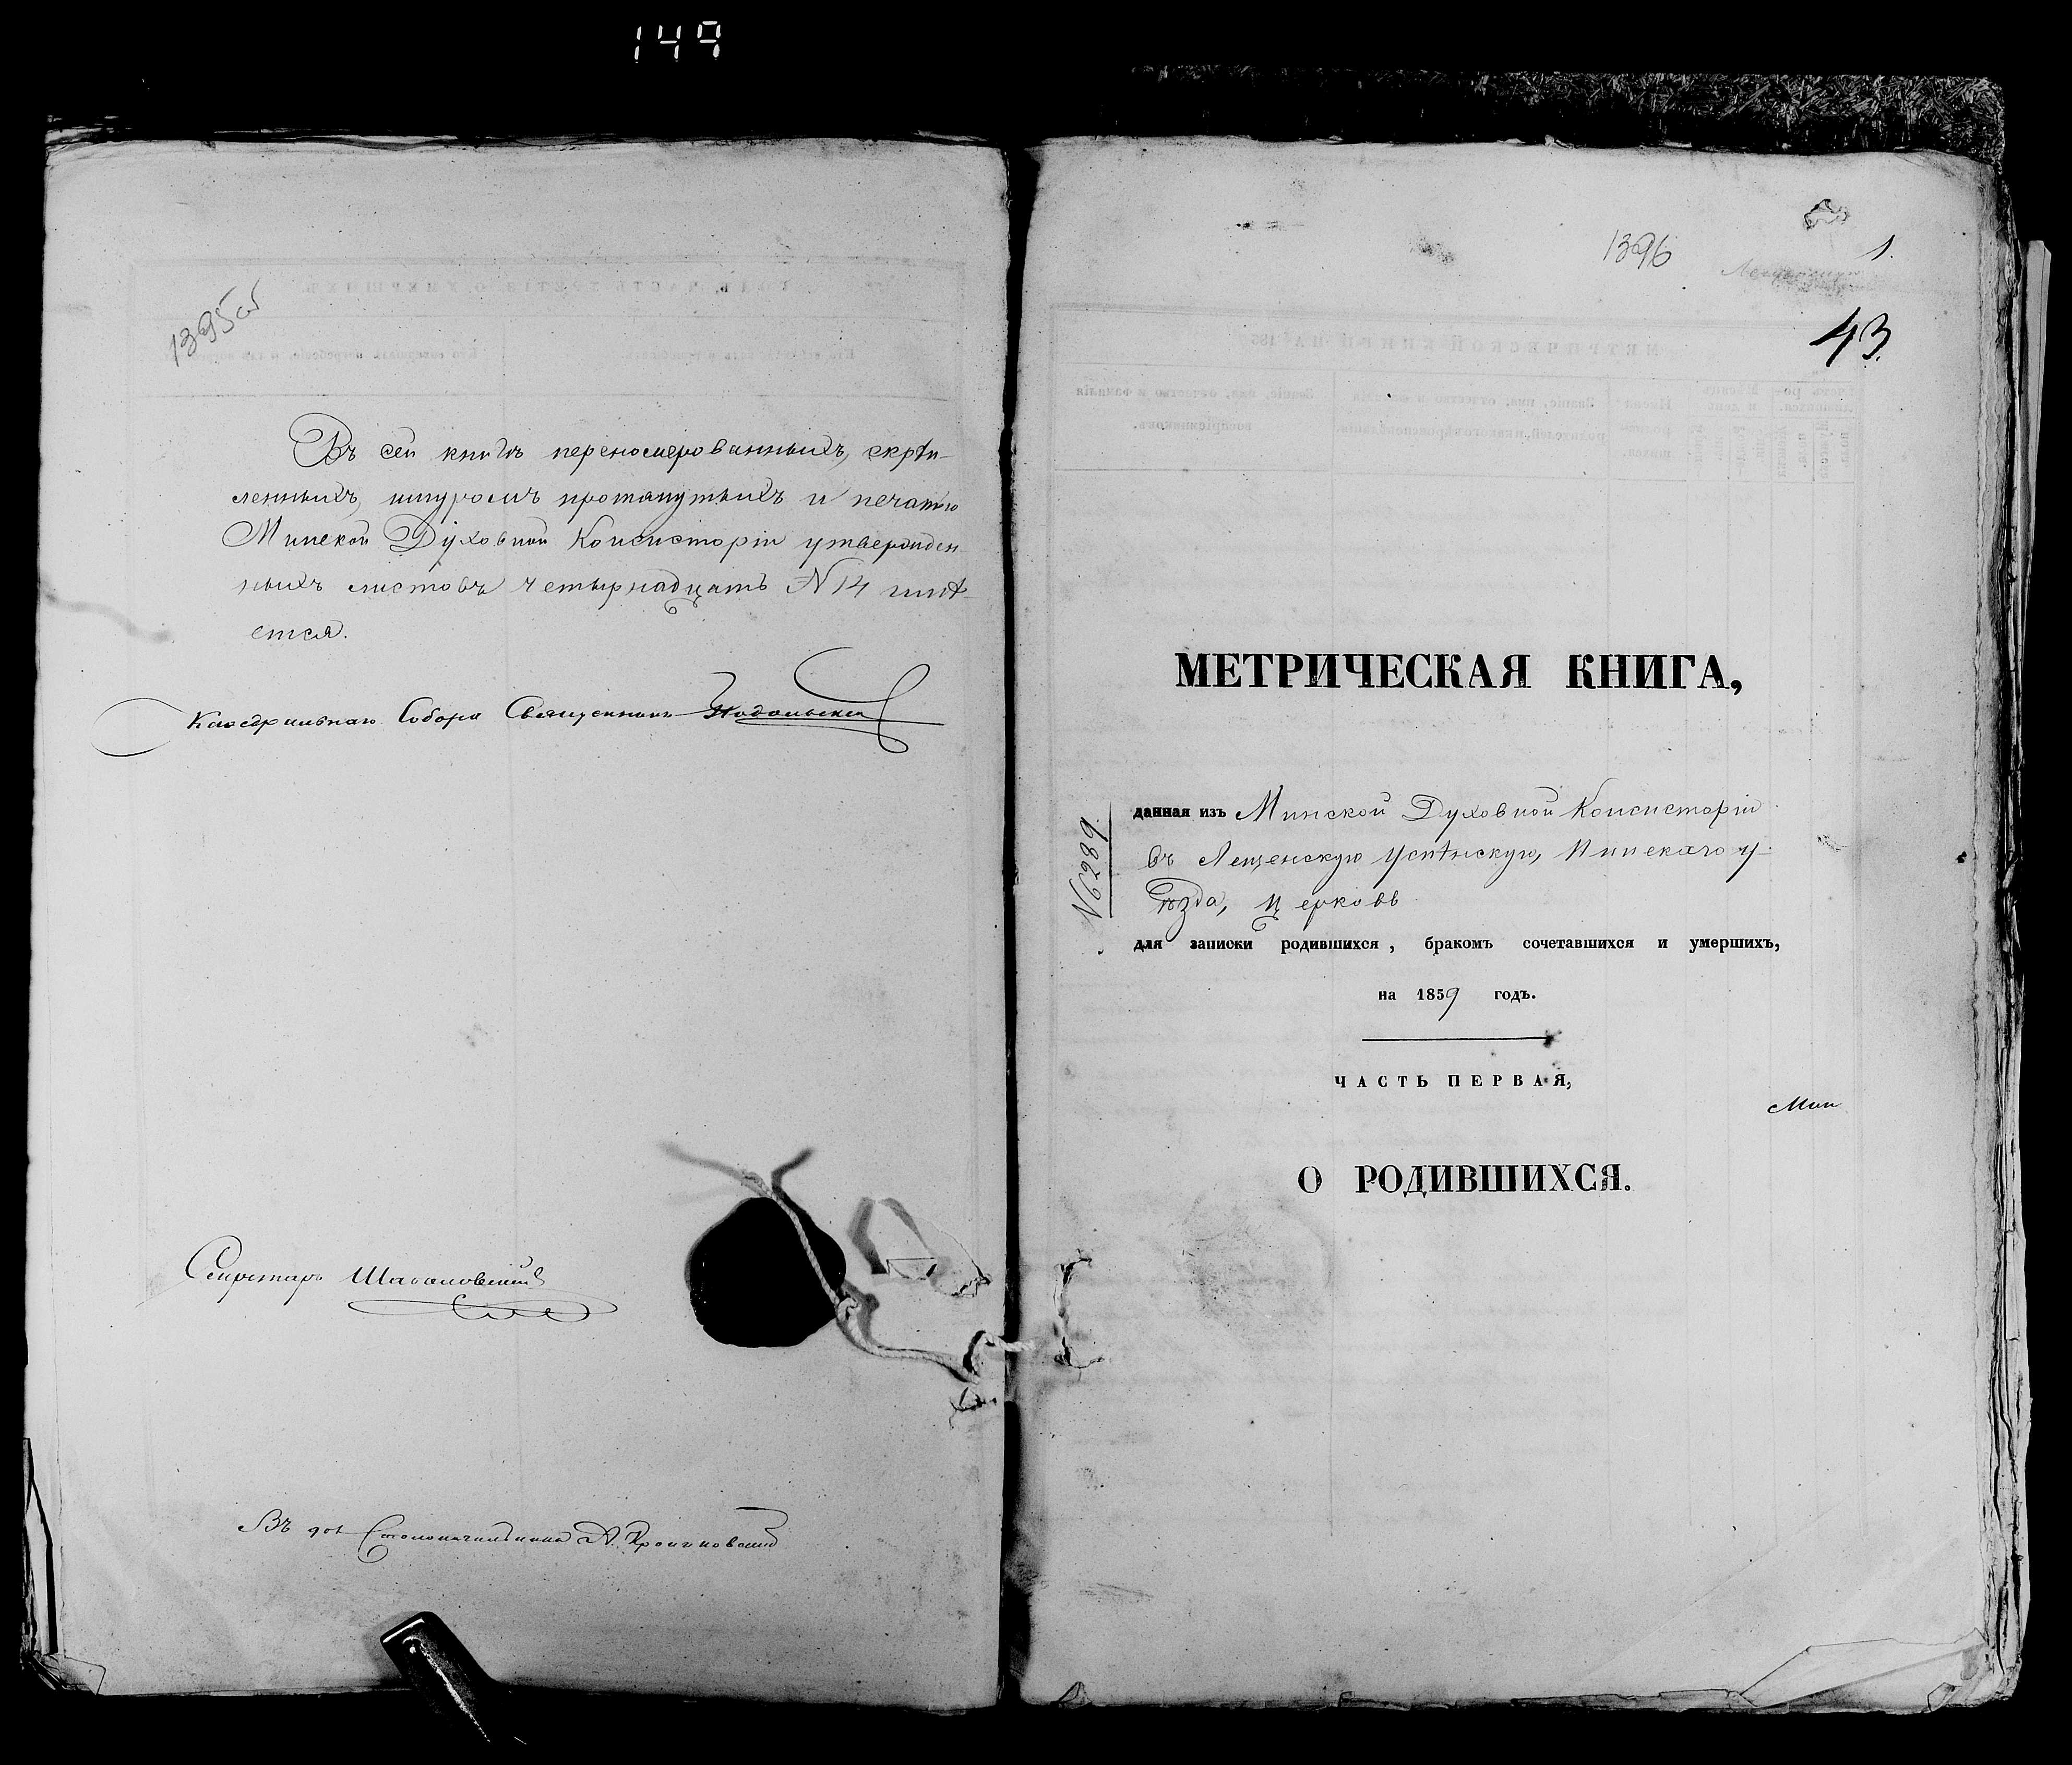 149
1395об
Въ сей книгѣ перенумерованныхъ, скрѣп-
ленныхъ, шнуромъ протянутыхъ и печатью
Минской Духовной Консисторіи утвержден-
ныхъ листовъ четырнадцать N 14 имѣ-
ется.
Каѳедральнаго Собора Священникъ Подольскій
Секретарь
Въ дол. Столоначальника А.
1396
1.
43.
МЕТРИЧЕСКАЯ КНИГА,
N6289.
данная изъ Минской Духовной Консисторіи
въ Лещенскую Успѣнскую, Пинскаго у-
ѣзда, церковь
для записки родившихся, бракомъ сочетавшихся и умершихъ,
на 1859 годъ.
ЧАСТЬ ПЕРВАЯ,
Мин
О РОДИВШИХСЯ.